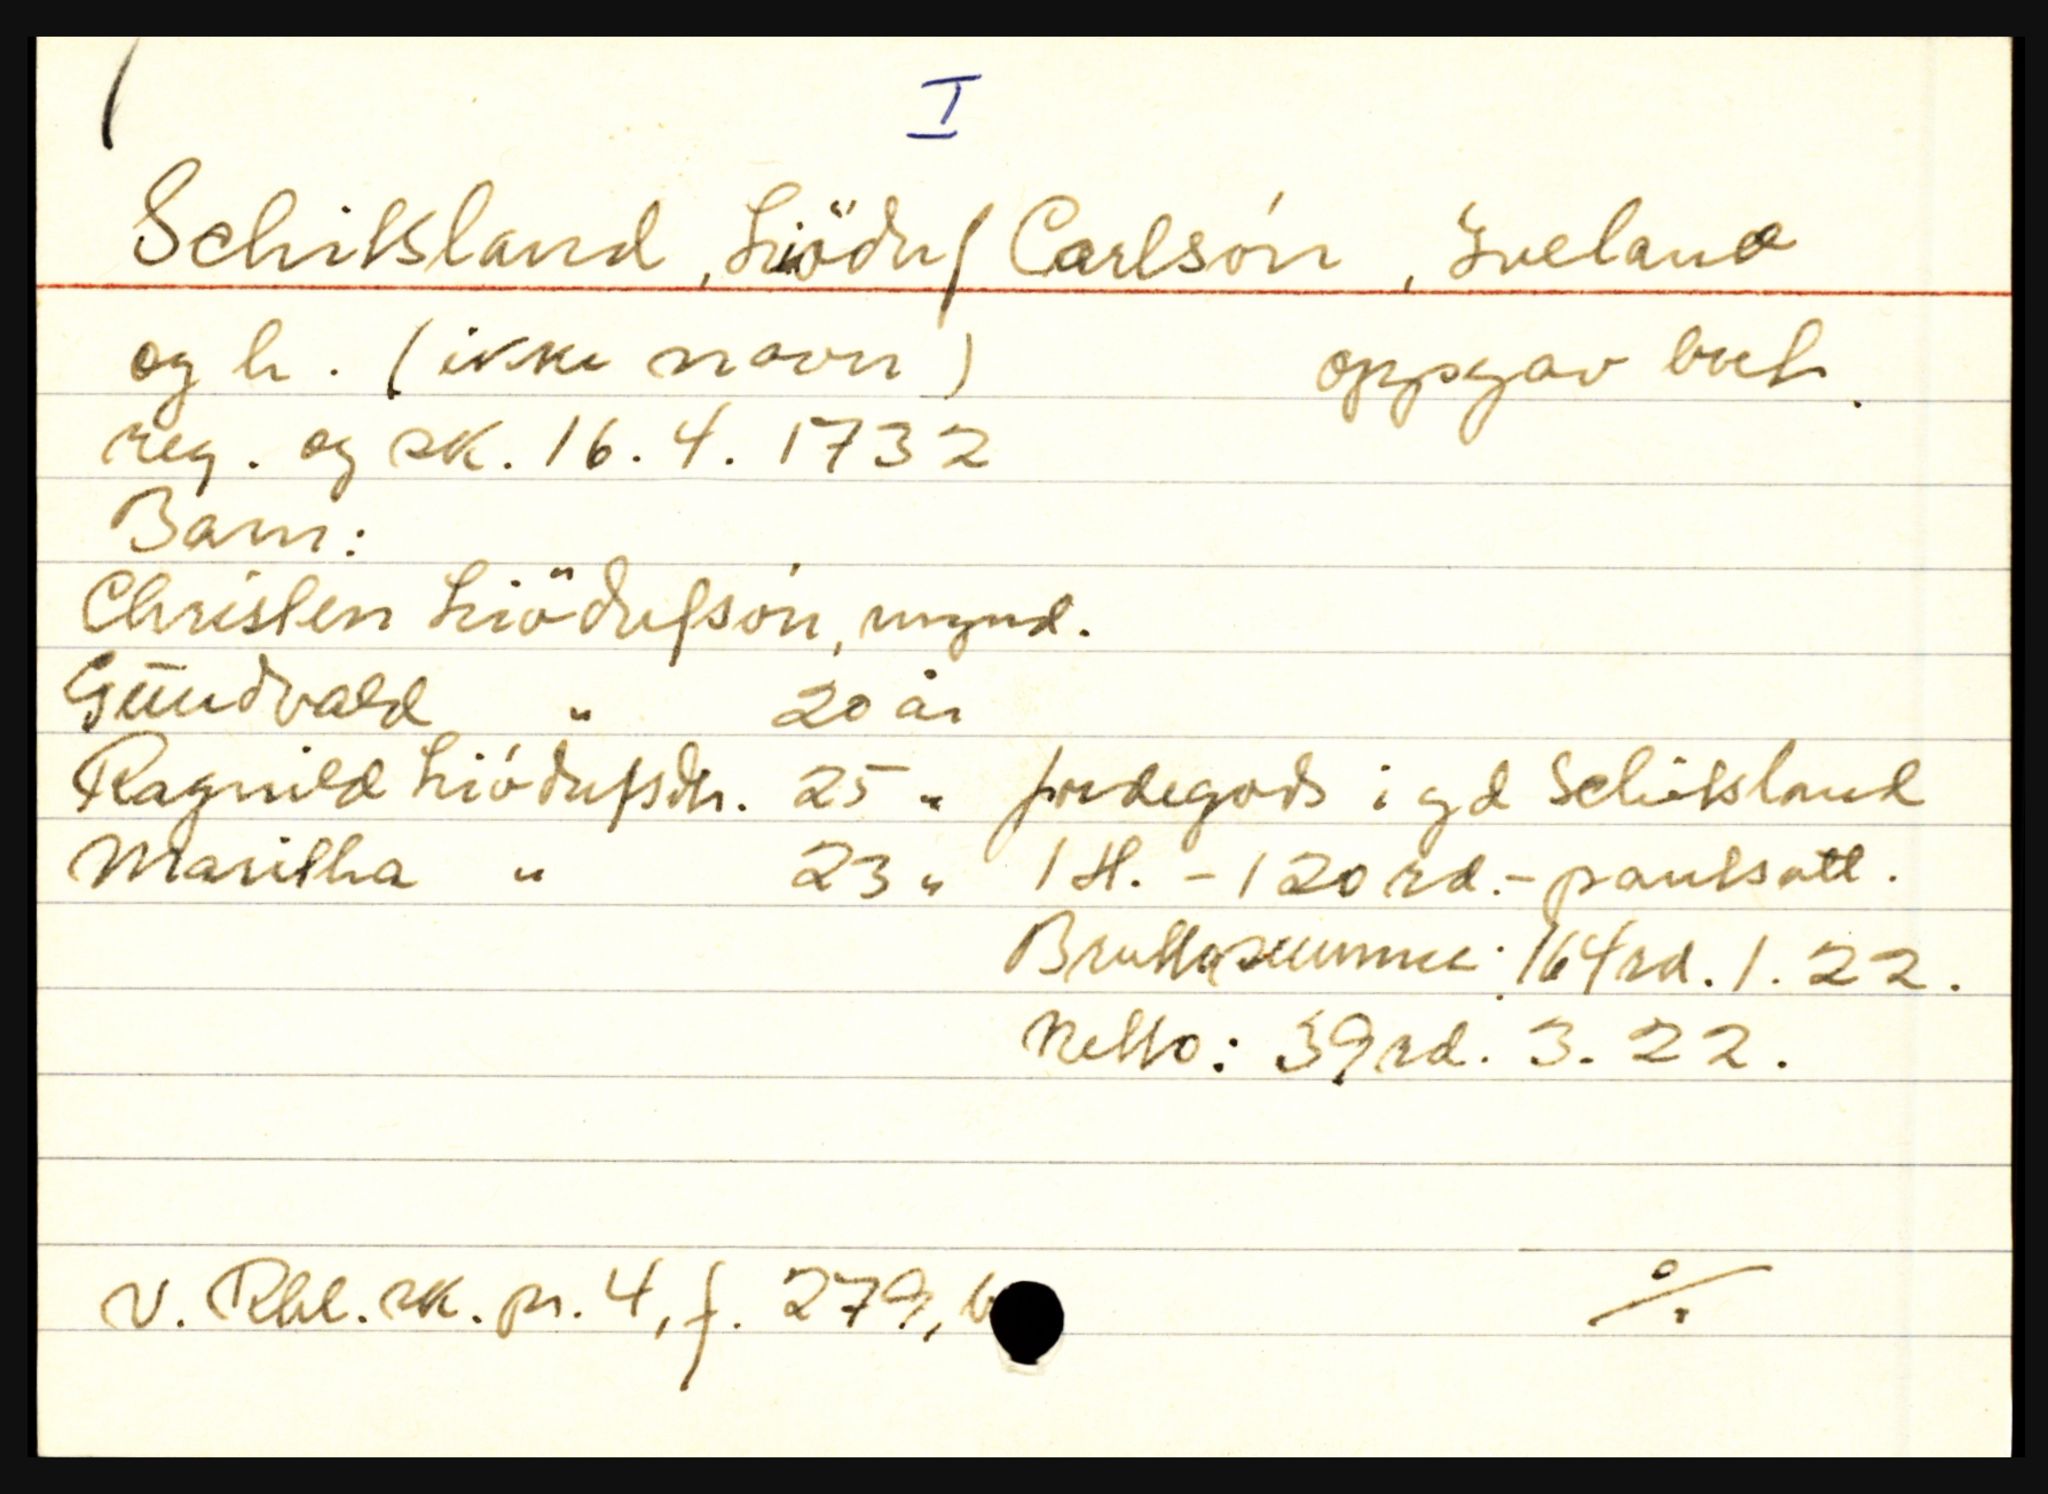 I
Schiksland, Liöduf Carlsón, Iveland
og h. (ikke navn) oppgav beh.
reg. og sk. 16.4.1732
Barn:
Christen Liödufsón, mynd.
Gundvald " 20 år
Ragnild Liódufsdtr. 25 " jordegods i gd Schiksland
Maritha " 23 " 1 H. - 120 rd. - pantsatt.
Bruttosumme: 164 rd. 1. 22.
Netto: 39 rd. 3. 22.
v. Rbl. sk. pr. 4, f. 279, b